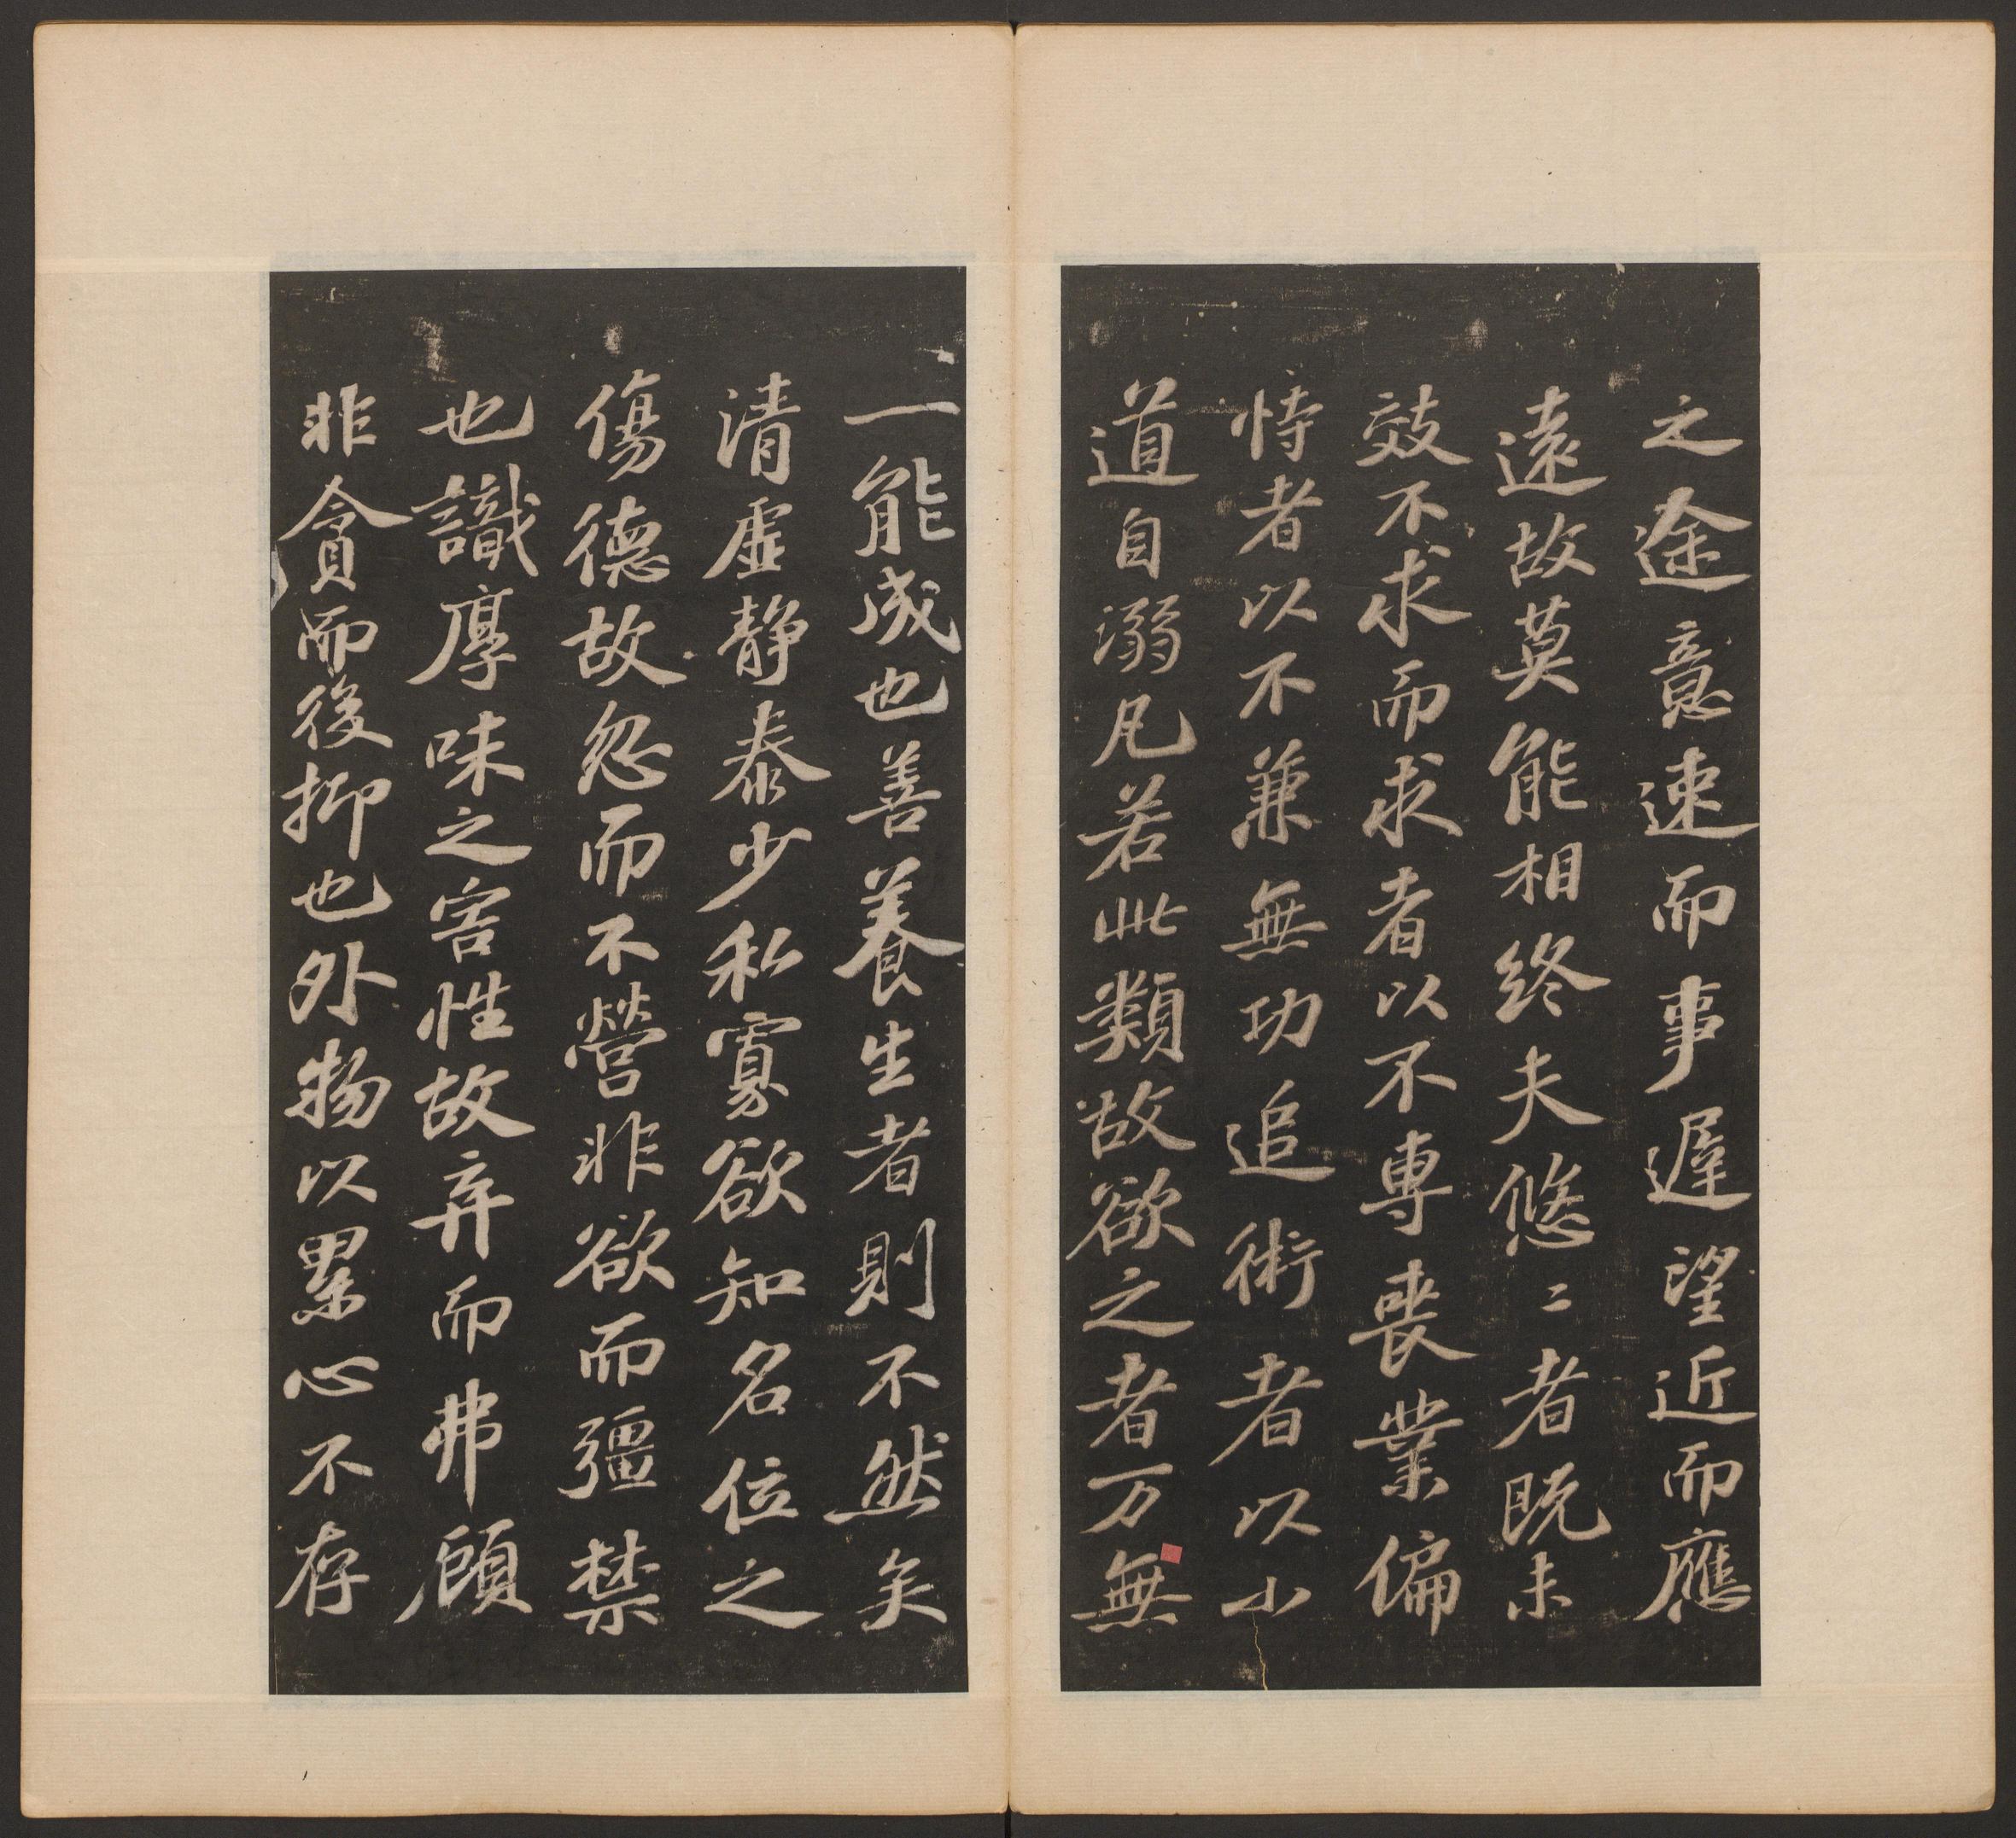 之途意速而事遲望近而應
遠故莫能相終夫悠〻者既未
效不求而求者以不專喪業偏
恃者以不兼無功追術者以小
道自溺凡若此類故欲之者万無
一能成也善養生者則不然矣
清虛静泰少私寡欲知名位之
傷德故忽而不營非欲而彊禁
也識厚味之害性故弃而弗顧
非貪而後抑也外物以累心不存